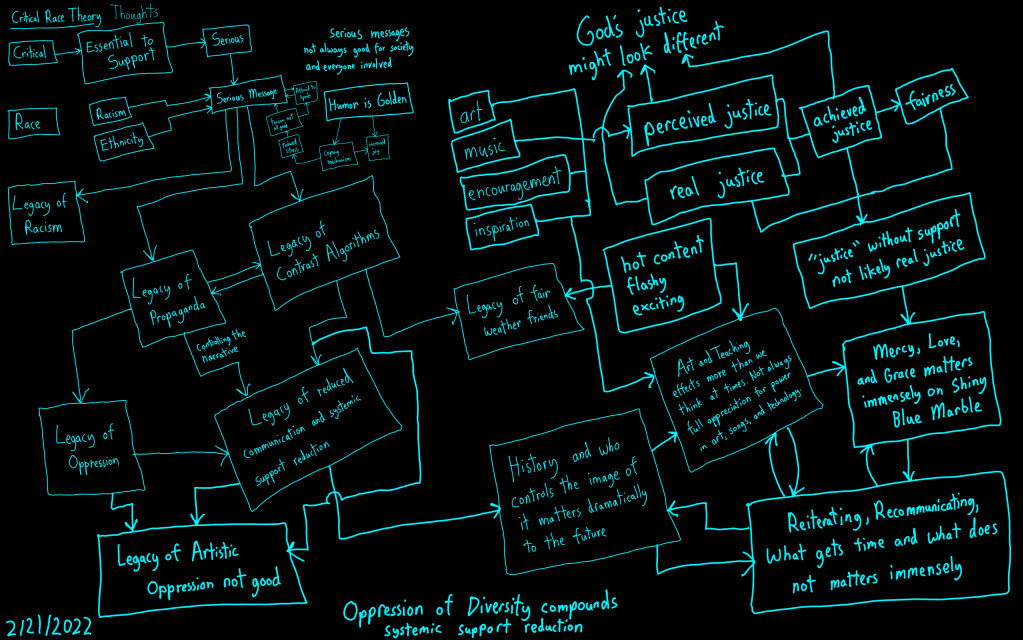 Critical Race Theory Thoughts
Critical
Essential to
Support
Serious
Serious messages
not always good for society
and everyone involved
Serious Message
Race
Racism
Ethnicity
Humor is Golden
Coping
mechanism
increased
joy
reduced
stress
Legacy of
Racism
Legacy of
Contrast Algorithms
Legacy of
Propaganda
Controlling the
narrative
Legacy of reduced
communication and systemic
support reduction
Legacy of
Oppression
Legacy of Artistic
Oppression not good
2/21/2022
Oppression of Diversity compounds
systemic support reduction
God's justice
might look different
art
music
encouragement
inspiration
perceived justice
real justice
achieved
justice
fairness
"justice" without support
not likely real justice
hot content
flashy
exciting
Legacy of fair
weather friends
Art and Teaching
effects more than we
think at times. Not always
full appreciation for power
in art, songs, and technology
Mercy, Love,
and Grace matters
immensely on Shiny
Blue Marble
History and who
controls the image of
it matters dramatically
to the future
Reiterating, Recommunicating,
What gets time and what does
not matters immensely